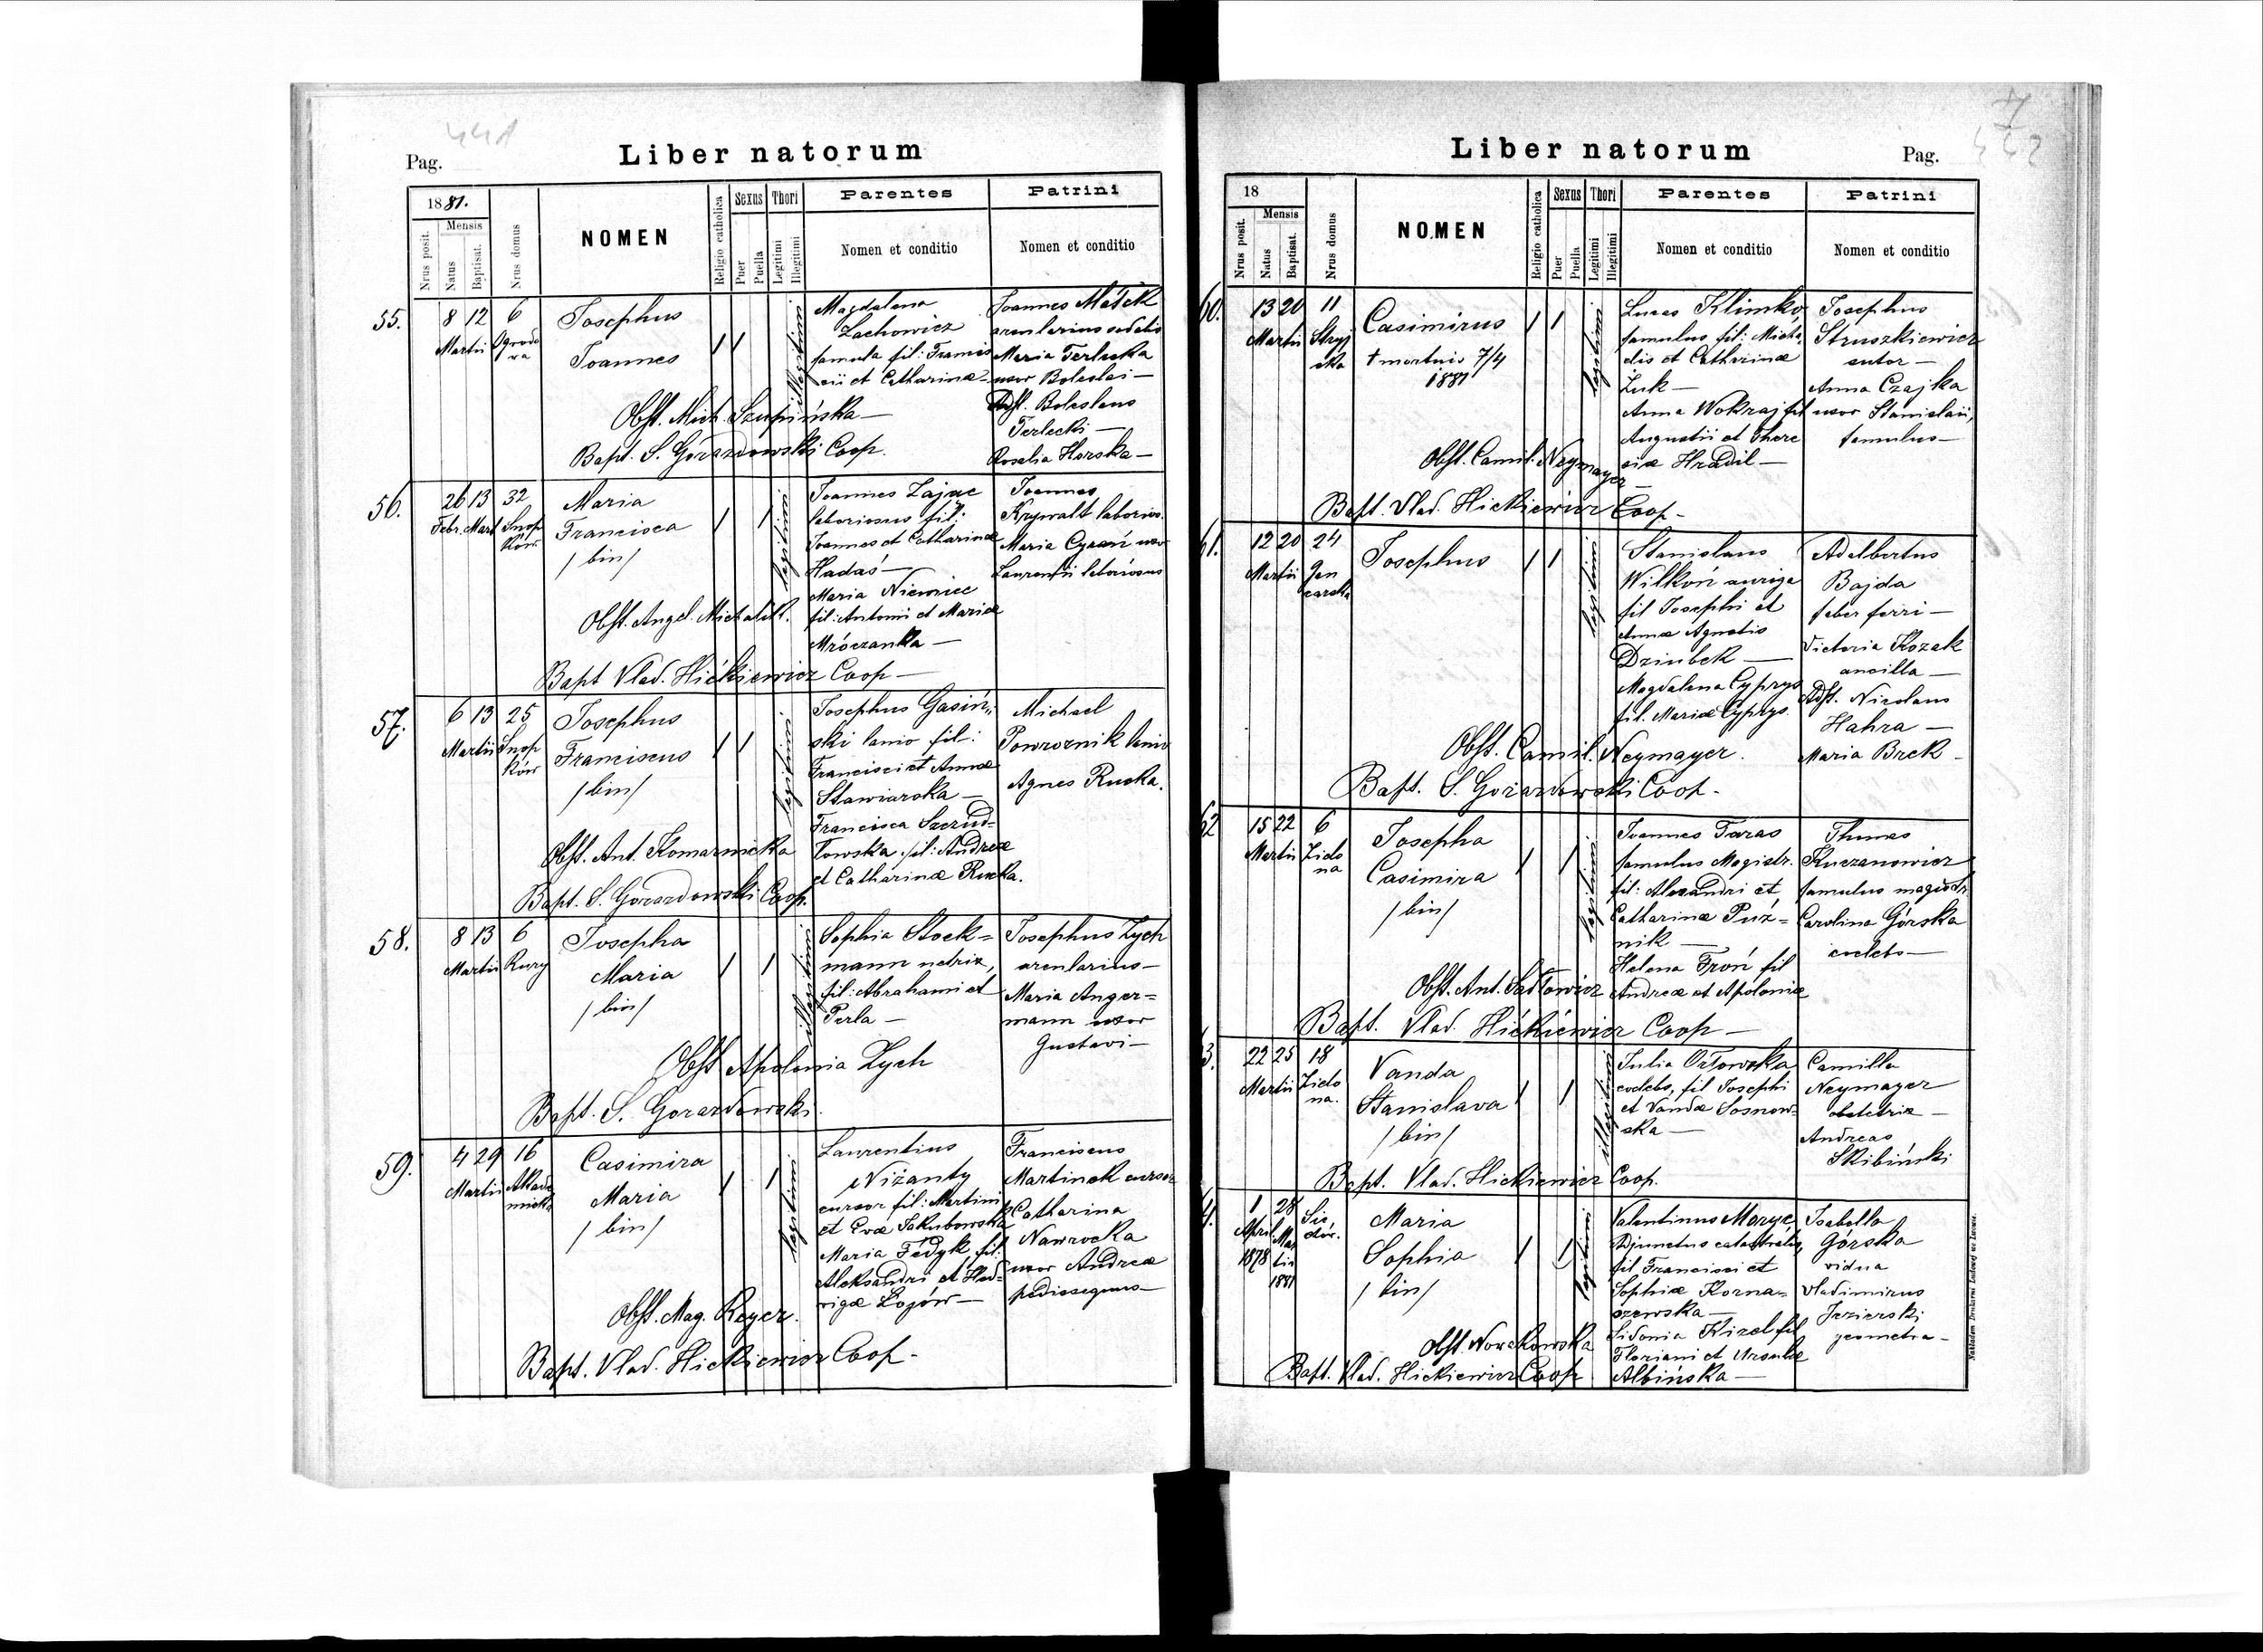 441
Pag.
Liber natorum
1881.
Nrus posit.
Mensis
Natus
Baptisat.
Nrus domus
NOMEN
Religio catholica
Sexus
Puer
Puella
Thori
Legitimi
Illegitimi
Parentes
Nomen et conditio
Patrini
Nomen et conditio
55.
8 12 6
Martii Ogrodo
wa
Josephus
Joannes
illegitimi
Magdalena
Lachowicz
famula fil: Francis
cii et Catharinæ
Joannes Małek
arcularius sodalis
Maria Terlecka
uxor Boleslai
Adst. Boleslaus
Terlecki
Rosalia Horska
Obst. Mich. Szupińska
Bapt. S. Gorazdowski Coop.
56.
26 13 32
Febr. Mart Snop
ków
Maria
Francisca
/bin/
legitimi
Joannes Zając
laboriosus fil:
Joannes et Catharinæ
Hadaś
Maria Niemiec
fil: Antonii et Mariæ
Mróczanka
Joannes
Krywalt laborios.
Maria Cyrań uxor
Laurentii laboriosus
Obst. Angel. Michalik.
Bapt Vlad. Hićkiewicz Coop
57.
6 13 25
Martii Snop
ków
Josephus
Franciscus
/bin/
legitimi
Josephus Gasiń
ski lanio fil:
Francisci et Annæ
Stawiarska
Francisca Szczud-
łowska fil: Andreæ
et Catharinæ Rucka.
Michael
Powroznik lanio
Agnes Rucka.
Obst. Ant. Komarnicka
Bapt. S. Gorazdowski Coop.
58.
8 13 6
Martii Rury
Josepha
Maria
/bin/
illegitimi
Sophia Stock=
mann netrix,
fil: Abrahami et
Perla
Josephus Zych
arcularius
Maria Anger=
mann uxor
Gustavi
Obst Apolonia Zych
Bapt. S. Gorazdowski
59.
4 29 16
Martii Akade
micka
Casimira
Maria
/bin/
legitimi
Laurentius
Niżanty
cursor fil: Martini
et Evæ Jakubowska
Maria Fedyk fil:
Aleksandri et Hed=
vigæ Łozów
Franciscus
Martinek cursor
Catharina
Nawrocka
uxor Andreæ
pedissequus
Obst. Mag. Reyer.
Bapt. Vlad. Hićkiewicz Coop.
Liber natorum
Pag.
7
442
18
Nrus posit.
Mensis
Natus
Baptisat.
Nrus domus
NOMEN
Religio catholica
Sexus
Puer
Puella
Thori
Legitimi
Illegitimi
Parentes
Nomen et conditio
Patrini
Nomen et conditio
60.
13 20 11
Martii Stryj
ska
Casimirus
† mortuis 7/4
1881
legitimi
Lucas Klimko,
famulus fil: Micha
elis et Catharinæ
Żuk
Anna Wokraj fil
Augustii et There
siæ Hradil
Josephus
Struszkiewicz
sutor
Anna Czajka
uxor Stanislaii,
famulus
Obst. Camil. Neymayer
Bapt. Vlad. Hićkiewicz Coop
61.
12 20 24
Martii Gan
carska
Josephus
legitimi
Stanislaus
Wilkoń auriga
fil Josephi et
Annæ Agnetis
Dziubek
Magdalena Cyprys
fil. Mariæ Cyprys.
Adelbertus
Bajda
faber ferri
Victoria Kozak
ancilla
Adst. Nicolaus
Hahra
Maria Brek
Obst. Camil. Neymayer.
Bapt. S. Gorazdowski Coop.
62
15 22 6
Martii Zielo
na
Josepha
Casimira
/bin/
legitimi
Joannes Taras
famulus Magistr.
fil: Alexandri et
Catharinæ Puź=
nik
Helena Froń fil
Andreæ et Apoloniæ
Thomas
Kuczanowicz
famulus magistr.
Carolina Górska
coelebs
Obst. Ant. Sadłowicz
Bapt. Vlad. Hićkiewicz Coop
3.
22 25 18
Martii Zielo
na.
Vanda
Stanislava
/bin/
illegitimi
Julia Orłowska
coelebs, fil Josephi
et Vandæ Sosnow=
ska
Camilla
Neymayer
obstetrix
Andreas
Skibiński
Bapt. Vlad. Hickiewicz Coop.
4.
1 28 Sie
April Mar dór.
1878 tii
1881
Maria
Sophia
/bin/
legitimi
Valentinus Moryc
Adjunctus catastralis,
fil Francisci et
Sophiæ Korna=
szewska
Sidonia Kizel fil
Floriani et Ursulæ
Albińska
Isabella
Górska
vidua
Vladimirus
Jezierski
geometra
Obst. Norchowska
Bapt. Vlad. Hickiewicz Coop
Nakładem Drukarni Ludowej we Lwowie.